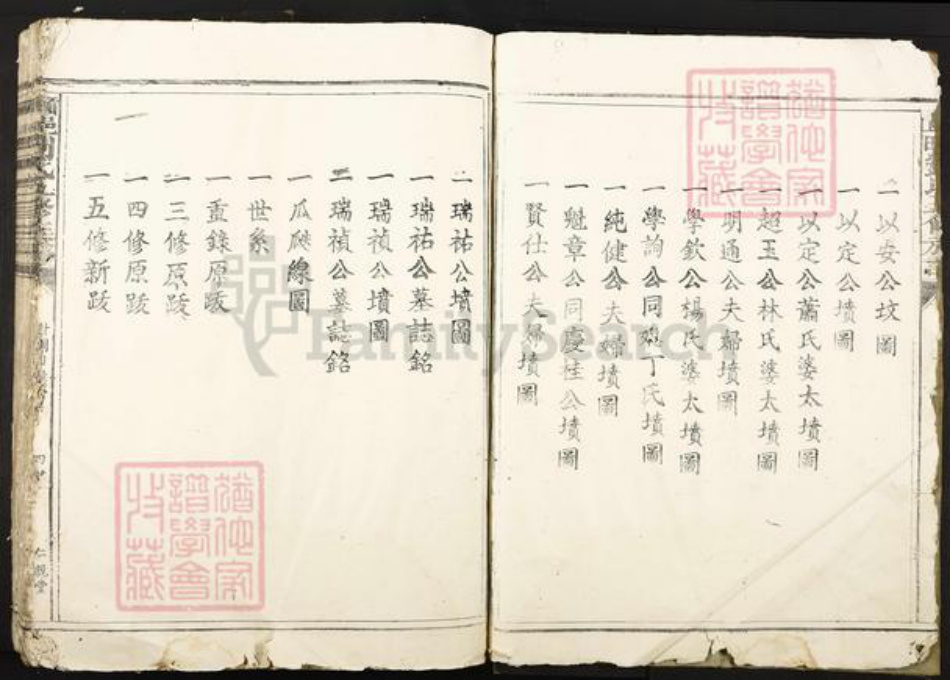 一以安公坟圖
一以定公墳圖
一以定公蕭氏婆太墳圖
一超玉公林氏婆太墳圖
一明通公夫婦墳圖
一學欽公楊氏婆太墳圖
一學詢公同媲丁氏墳圖
一純健公夫婦墳圖
一魁章公同慶桂公墳圖
一賢仕公夫婦墳圖
一瑞祐公墳圖
一瑞祐公墓誌銘
一瑞禎公墳圖
一瑞禎公墓誌銘
一瓜瓞線圖
一世系
一重錄原跋
一三修原跋
一四修原跋
一五修新跋
仁親堂
譜學會
收藏
譜學會
收藏
FamilySearch